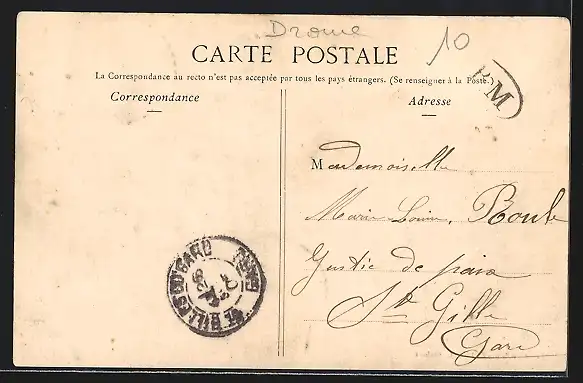 Drome
10
CARTE POSTALE
La Correspondance au recto n'est pas acceptée par tous les pays étrangers. (Se renseigner à la Poste.)
Correspondance
Adresse
B M
Mademoiselle
Marie Louise,
de
St Gilles
Gard
ST GILLES-DU-GARD